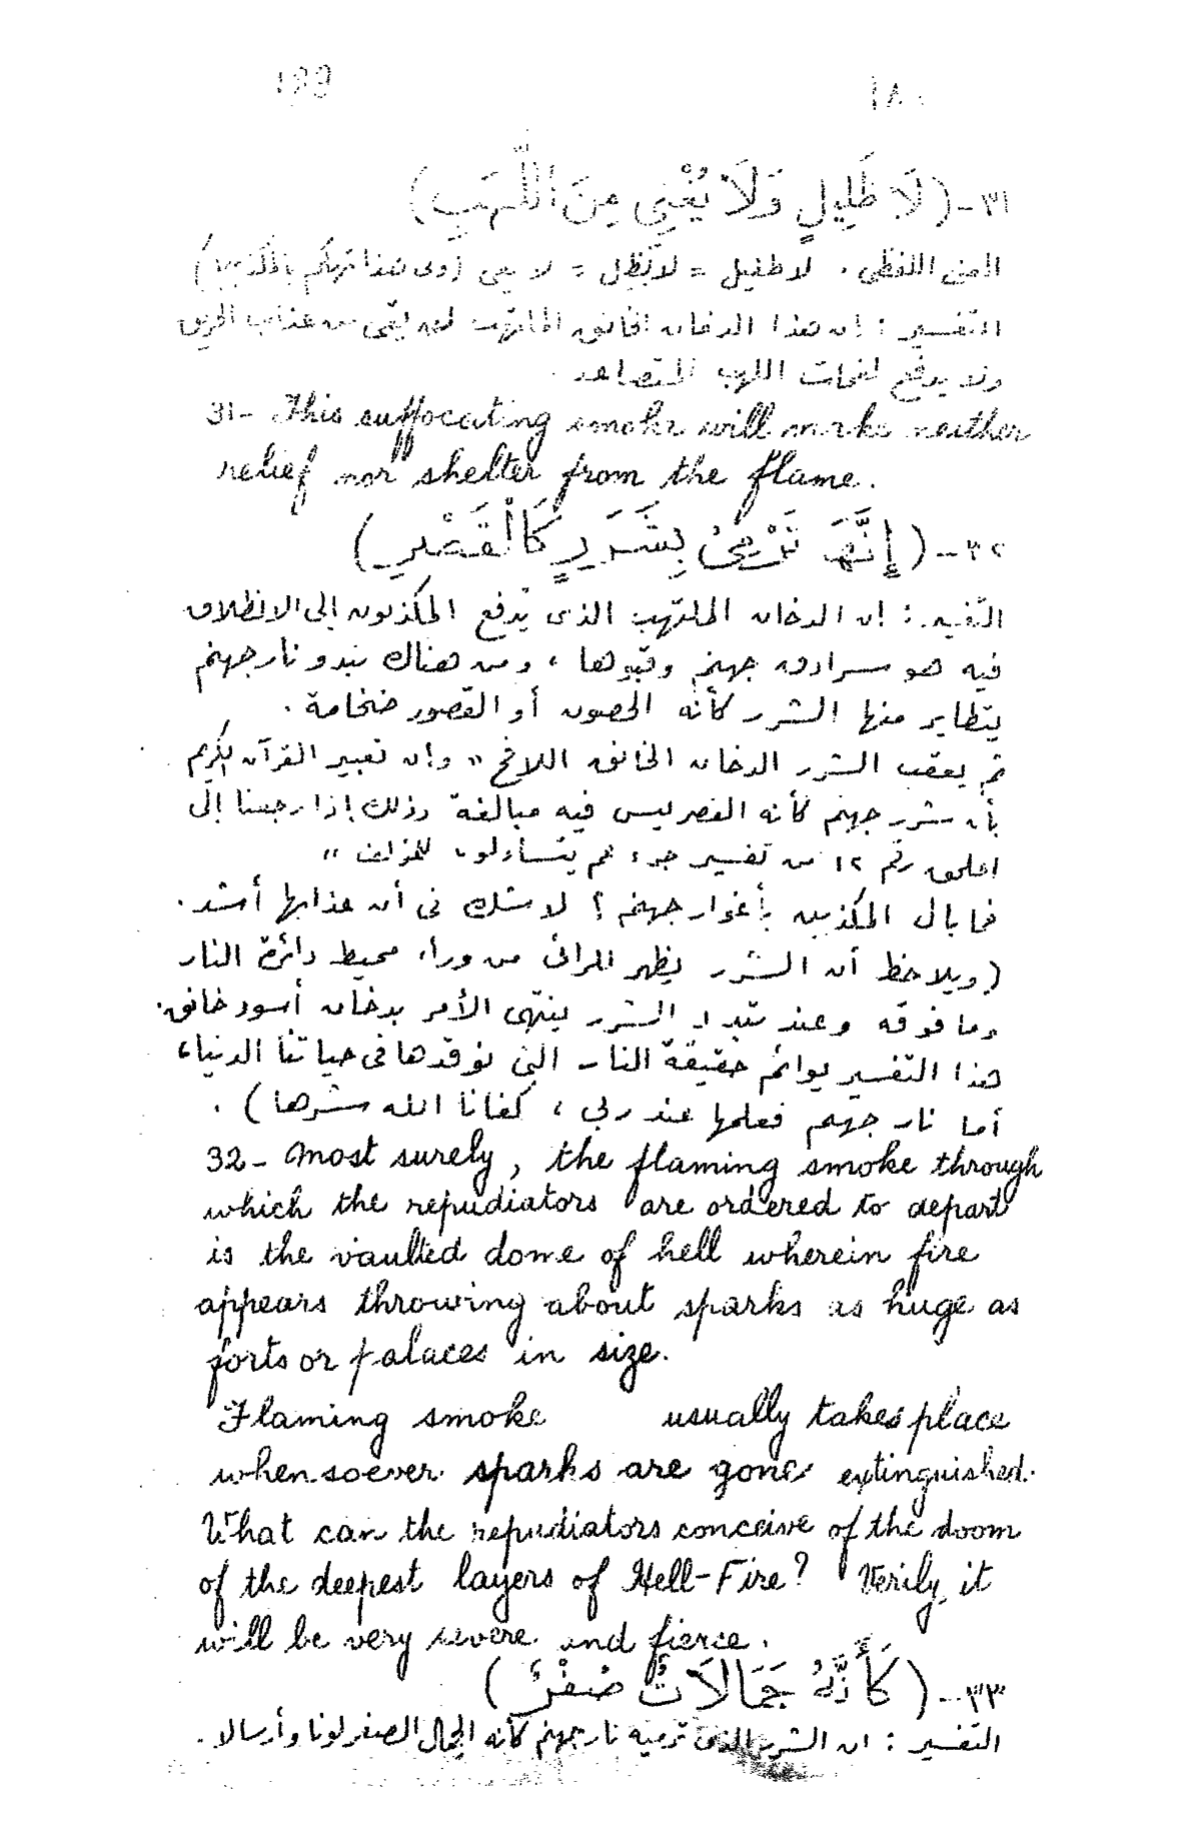 ١٨٠
٣١-(لَا ظَلِيلٍ وَلَا يُغْنِى مِنَ اللَّهَبِ)
المعنى اللفظى. لا ظليل = لا تظل = لا يقى (وفى هذا تهكم بالمكذبين)
التفسير : إن هذا الدخان الخانق الملتهب لا يقى من عذاب الحريق
ولا يدفع لفحات اللهب المتصاعد.
31- This suffocating smoke will make neither
relief nor shelter from the flame.
٣٢-(إِنَّهَا تَرْمِى بِشَرَرٍ كَالْقَصْرِ)
التفسير : إن الدخان الملتهب الذى يدفع المكذبون إلى الانطلاق
فيه هو سرادق جهنم وقبوها ، ومن هناك تبدو نار جهنم
يتطاير منها الشرر كأنه الحصون أو القصور ضخامة .
ثم يعقب الشرر الدخان الخانق اللافح " وإن تعبير القرآن الكريم
بأن شرر جهنم كأنه القصر ليس فيه مبالغة وذلك إذا رجعنا إلى
الملحق رقم ١٢ من تفسير جزء عم يتساءلون للمؤلف "
فما بال المكذبين بأغوار جهنم ؟ لا شك فى أن عذابها أشد .
(ويلاحظ أن الشرر يظهر للرائى من وراء محيط دائرة النار
وما فوقه وعند تبدد الشرر ينتهى الأمر بدخان أسود خانق .
هذا التفسير يوائم حقيقة النار التى نوقدها فى حياتنا الدنيا ،
أما نار جهنم فعلمها عند ربى ، كفانا الله شرها) .
32- Most surely, the flaming smoke through
which the repudiators are ordered to depart
is the vaulted dome of hell wherein fire
appears throwing about sparks as huge as
forts or palaces in size.
Flaming smoke usually takes place
whensoever sparks are gone extinguished.
What can the repudiators conceive of the doom
of the deepest layers of Hell-Fire? Verily, it
will be very severe and fierce.
٣٣-(كَأَنَّهُ جَمَالَاتٌ صُفْرٌ)
التفسير : إن الشرر الذى ترميه نار جهنم كأنه الجمال الصفر لونا وأرسالا .